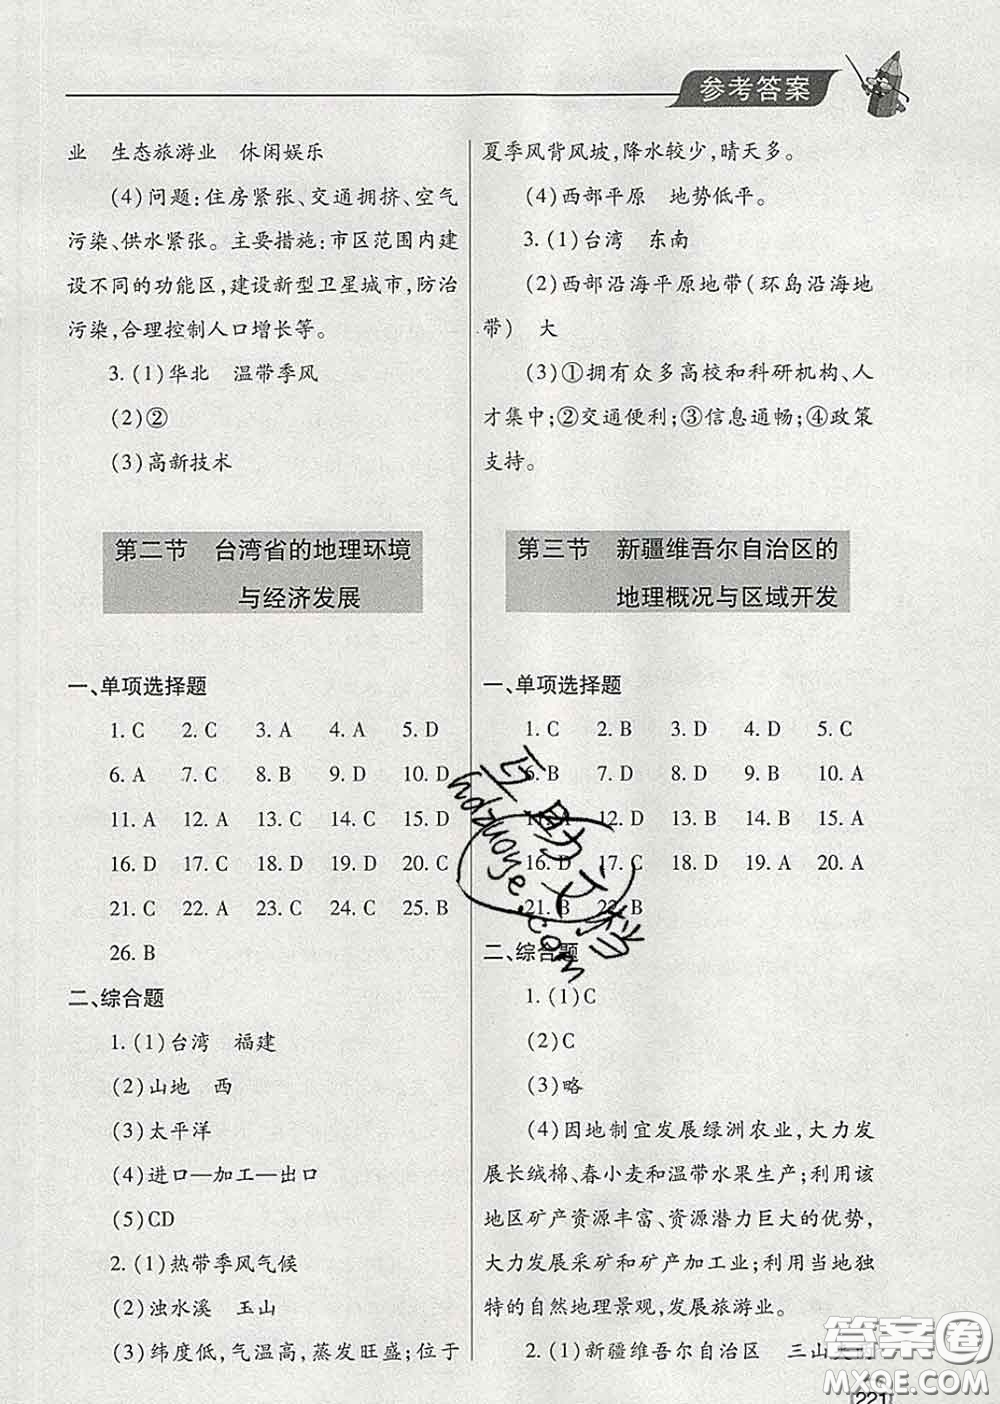 参考答案
业　生态旅游业　休闲娱乐
(4)问题:住房紧张、交通拥挤、空气
污染、供水紧张。主要措施:市区范围内建
设不同的功能区,建设新型卫星城市,防治
污染,合理控制人口增长等。
3. (1)华北　温带季风
(2)②
(3)高新技术
第二节　台湾省的地理环境
与经济发展
一、单项选择题
1. C　2. C　3. A　4. A　5. D
6. A　7. C　8. B　9. D　10. D
11. A　12. A　13. C　14. C　15. D
16. D　17. C　18. D　19. D　20. C
21. C　22. A　23. C　24. C　25. B
26. B
二、综合题
1. (1)台湾　福建
(2)山地　西
(3)太平洋
(4)进口—加工—出口
(5)CD
2. (1)热带季风气候
(2)浊水溪　玉山
(3)纬度低,气温高,蒸发旺盛;位于
夏季风背风坡,降水较少,晴天多。
(4)西部平原　地势低平。
3. (1)台湾　东南
(2)西部沿海平原地带(环岛沿海地
带)　大
(3)①拥有众多高校和科研机构、人
才集中;②交通便利;③信息通畅;④政策
支持。
第三节　新疆维吾尔自治区的
地理概况与区域开发
一、单项选择题
1. C　2. B　3. D　4. D　5. C
6. B　7. D　8. D　9. B　10. A
12. D　13. B　14. B　15. A
16. D　17. C　18. D　19. A　20. A
21. B　22. B
二、综合题
1. (1)C
(2)C
(3)略
(4)因地制宜发展绿洲农业,大力发
展长绒棉、春小麦和温带水果生产;利用该
地区矿产资源丰富、资源潜力巨大的优势,
大力发展采矿和矿产加工业;利用当地独
特的自然地理景观,发展旅游业。
2. (1)新疆维吾尔自治区　三山夹
221
互助文档
hdzuoye.com
答案圈
MXQE.COM